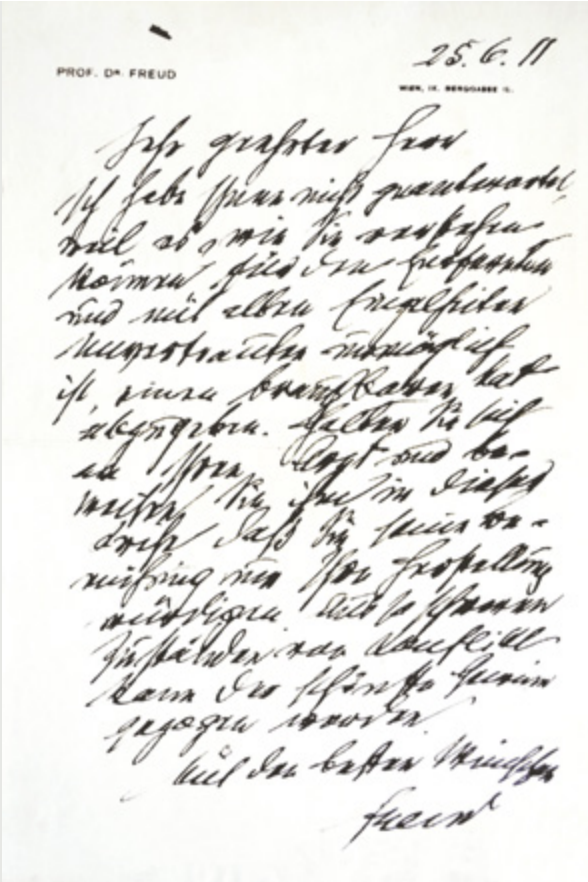 PROF. DR. FREUD
25. 6. 11
WIEN, IX. BERGGASSE 19.
Sehr geehrter Herr
Ich habe Ihnen nicht geantwortet,
weil es, wie Sie verstehen
können, für den Entfernten
und mit allen Einzelheiten
Unvertrauten unmöglich
ist, einen brauchbaren Rat
abzugeben. Halten Sie sich
an Ihren Arzt und be-
weisen Sie ihm in dieser
daß Sie seine Be-
mühung um Ihre Herstellung
würdigen. Auch so schweren
Zuständen von Konflikt
kann der schönste Gewinn
gezogen werden.
Mit den besten Wünschen
Freud